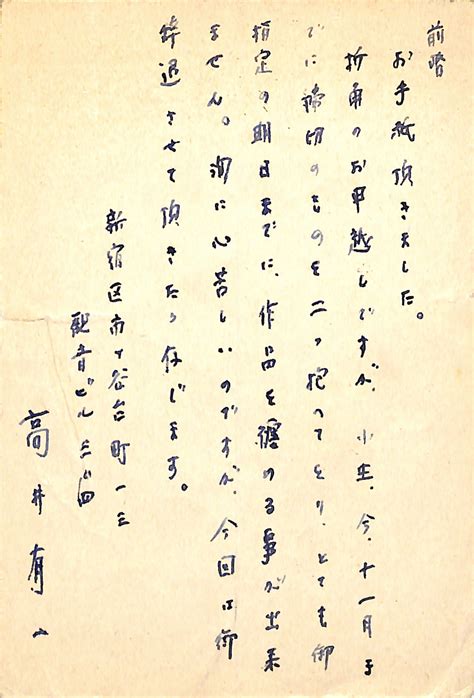 前略
お手紙頂きました。
折角のお申越しですが、小生、今、十一月ま
でに締切のものを二つ抱へてをり、とても御
指定の期日までに、作品を纏める事が出来
ません。洵に心苦しいのですが、今回は御
辞退させて頂きたう存じます。
新宿区市ヶ谷台町一三
観音ビル
高井有一